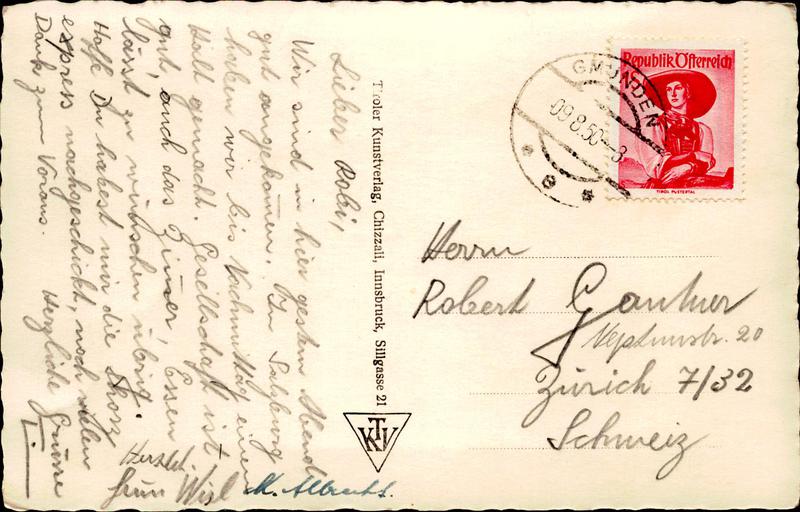 Lieber Robi,
Wir sind in hier gestern Abend
gut angekommen. In Salzburg
haben wir bis Nachmittag einen
Halt gemacht. Gesellschaft ist
gut, auch das Zimmer, Essen
lässt zu wünschen übrig.
Hoffe Du habest mir die
express nachgeschickt, noch vielen
Dank zum Voraus.
Herzliche Grüsse
Herzl.
M. Albrecht.
Tiroler Kunstverlag, Chizzali, Innsbruck, Sillgasse 21
KTV
Republik Österreich
TIROL PUSTERTAL
GMUNDEN
09.8.50-8
Herrn
Robert Gantner
Neptunstr. 20
Zürich 7/32
Schweiz